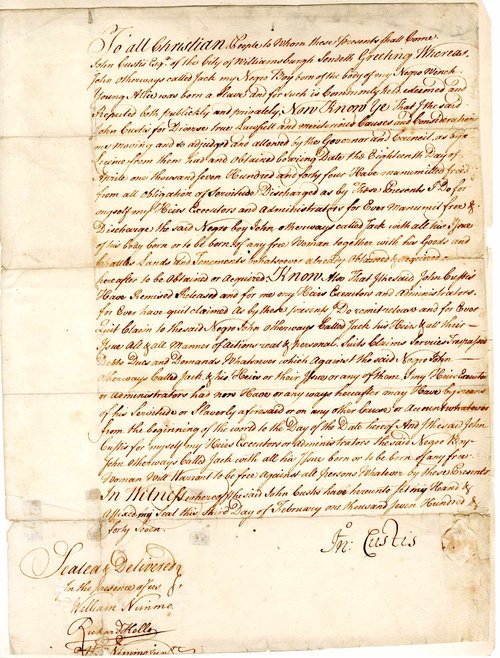 To all Christian People to Whom these Presents shall Come
John Custis Esqr. of the City of Williamsburgh Sendeth Greeting Whereas
John otherways called Jack my Negro Boy born of the body of my Negro Wench
Young Alice was born a Slave and for such is Commonly held deemed and
Reputed both publickly and privately, Now Know Ye That I the said
John Custis for Diverse true Lawfull and meritorious Causes and Consideration
me moving and so adjudged and allowed by the Governor and Council as by a
Licence from them had and Obtained bearing Date the Eighteenth Day of
Aprile one thousand seven Hundred and forty four Have manumitted freed
from all obligation of Servitude Discharged as by These Presents I Do for
myself my Heirs Executors and Administrators for Ever Manumit free &
Discharge the said Negro boy John otherways called Jack with all his Issue
of his Body born or to be born of any free Woman together with his Goods and
Chattles Lands and Tenements whatsoever already Obtained & acquired or
hereafter to be Obtained or Acquired Know Also That I the said John Custis
Have Remised Released and for me my Heirs Executors and Administrators
for Ever have quit claimed As by these present I Do remit release and for Ever
Quit Claim to the said Negro John otherways Called Jack his Heirs & all their
Issue All & all Manner of Actions real & personal Suits Claims Services Trespasses
Debts Dues and Demands Whatsoever which Against the said Negro John
otherways called Jack & his Heirs or their Issue or any of them I my Heirs Executors
or Administrators had now Have or any ways hereafter may Have by reason
of his Servitude or Slavery aforesaid or on any other Cause or Account whatsoever
from the beginning of the world to the Day of the Date hereof And I the said John
Custis for myself my Heirs Executors or Administrators the said Negro Boy
John otherways Called Jack with all his Issue born or to be born of any free
Woman Will Warrant to be free Against all Persons Whatever by these Presents
In Witness whereof I the said John Custis have hereunto set my Hand &
Affixed my Seal this third Day of February one thousand seven Hundred &
forty seven
Jn: Custis
Sealed & Delivered
In the presence of us
William Nimmo
Richard Kello
Nimmo Junr